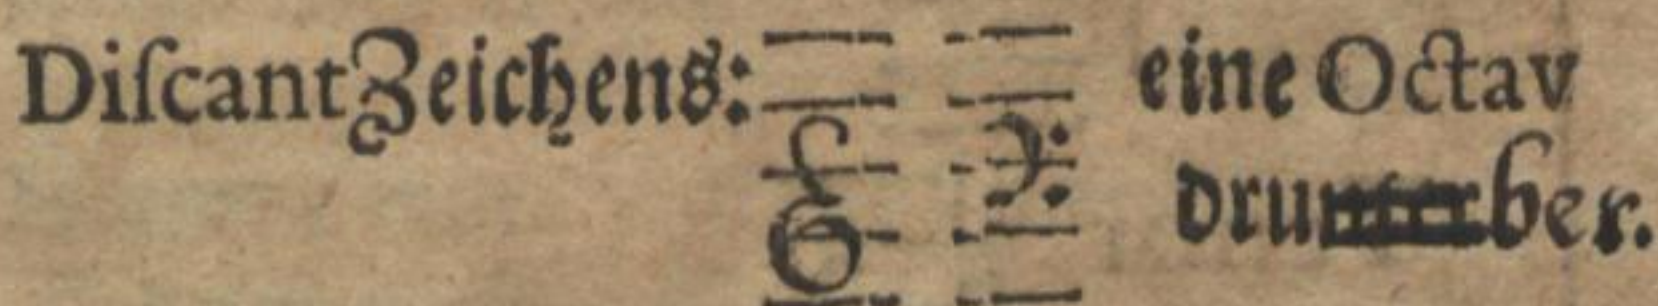 Diſcant Zeichens: eine Octav
druber.